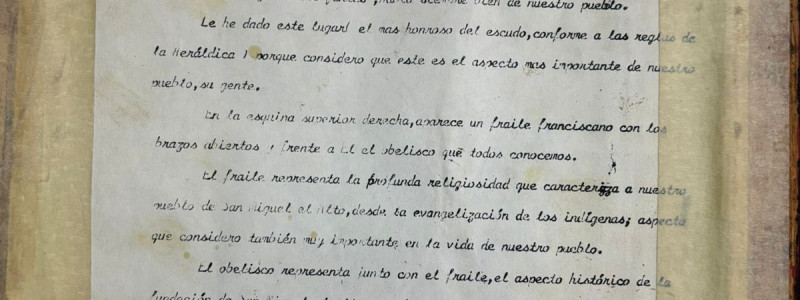 bien de nuestro pueblo.
Le he dado este lugar( el mas honroso del escudo, conforme a las reglas de
la Heráldica ) porque considero que este es el aspecto mas importante de nuestro
pueblo, su gente.
En la esquina superior derecha, aparece un fraile franciscano con los
brazos abiertos y frente a El el obelisco que todos conocemos.
El fraile representa la profunda religiosidad que caracteriza a nuestro
pueblo de San Miguel el Alto, desde la evangelización de los indígenas; aspecto
que considero también muy importante en la vida de nuestro pueblo.
El obelisco representa junto con el fraile, el aspecto histórico de la
fundación de